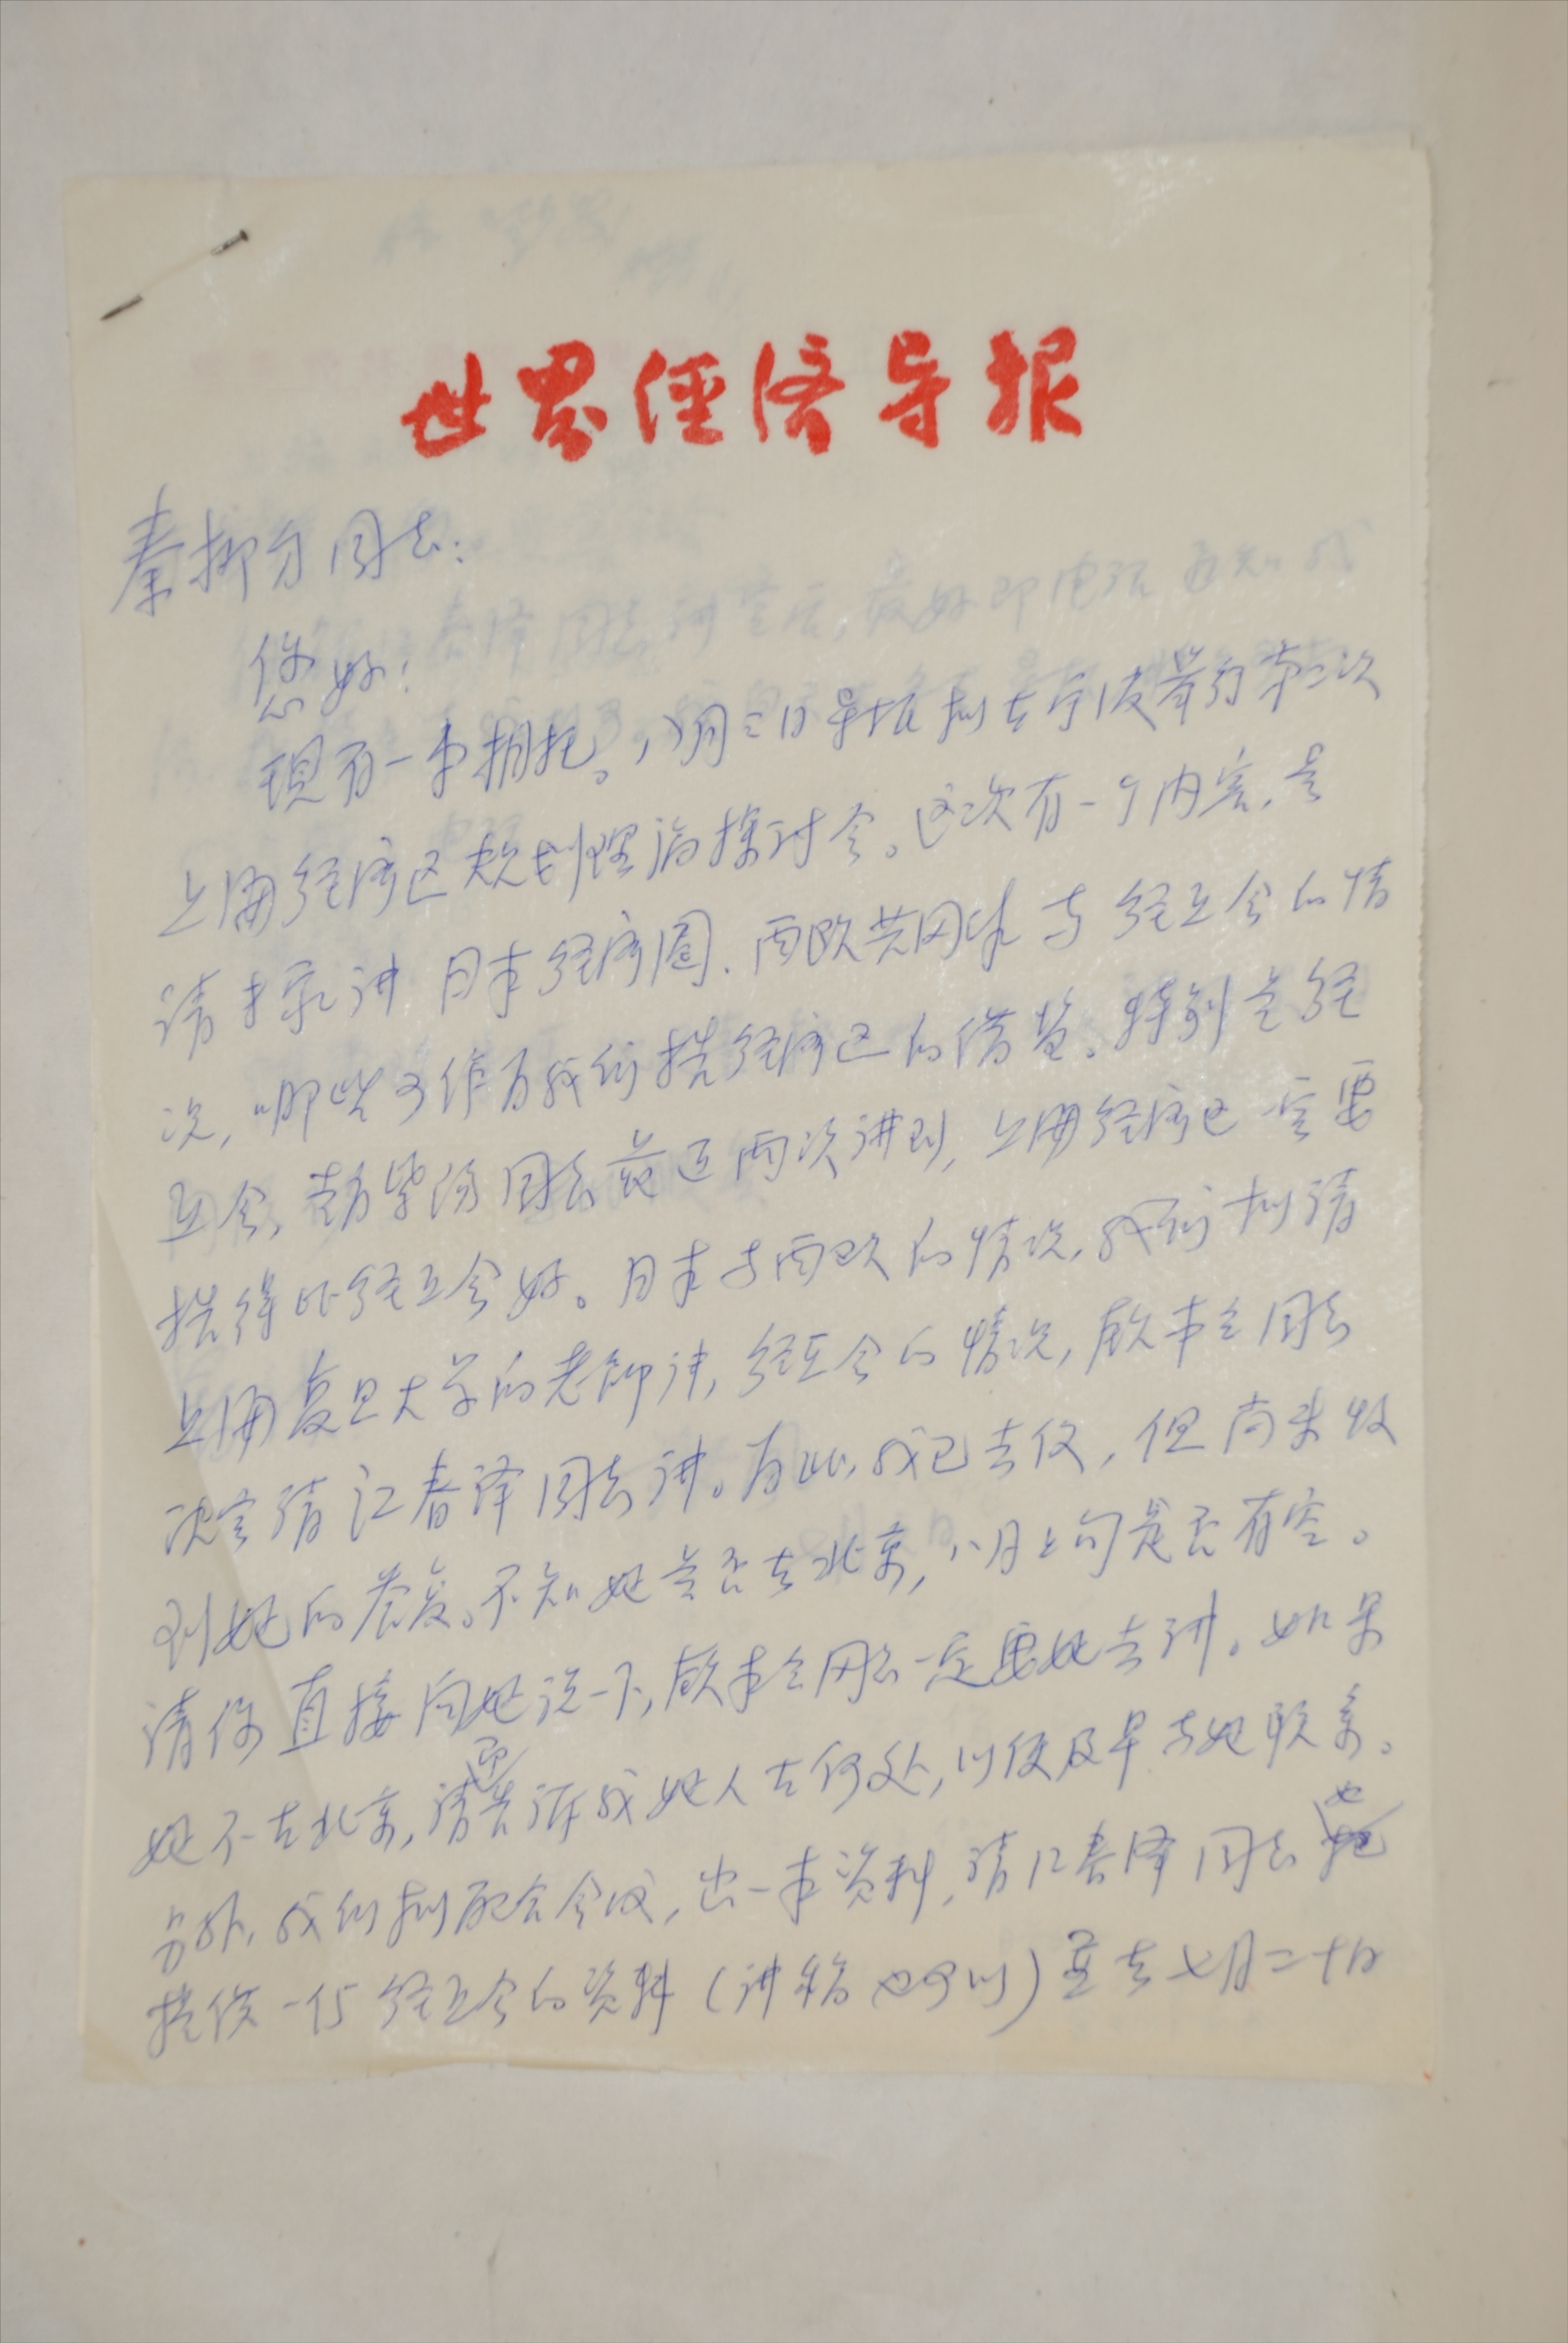 世界经济导报
秦柳方同志:
您好!
现有一事拥托。八月三日导报拟在宁波举行第二次
上海经济区规划理论探讨会。这次有一个内容,是
请专家讲日本经济圈、西欧共同体与经互会的情
况,哪些可作为我们搞经济区的借鉴。特别是经
互会,赵紫阳同志最近两次讲到,上海经济区一定要
搞得比经互会好。日本与西欧的情况,我们拟请
上海复旦大学的老师讲,经互会的情况,钦本立同志
决定请江春泽同志讲。为此,我已去信,但尚未收
到她的答复。不知她是否在北京,八月上旬是否有空。
请你直接向她说一下,钦本立同志一定要她去讲。如果
她不在北京,请即告诉我她人在何处,以便及早与她联系。
另外,我们拟配合会议,出一本资料,请江春泽同志也
提供一份经互会的资料(讲稿也可以)并在七月二十日